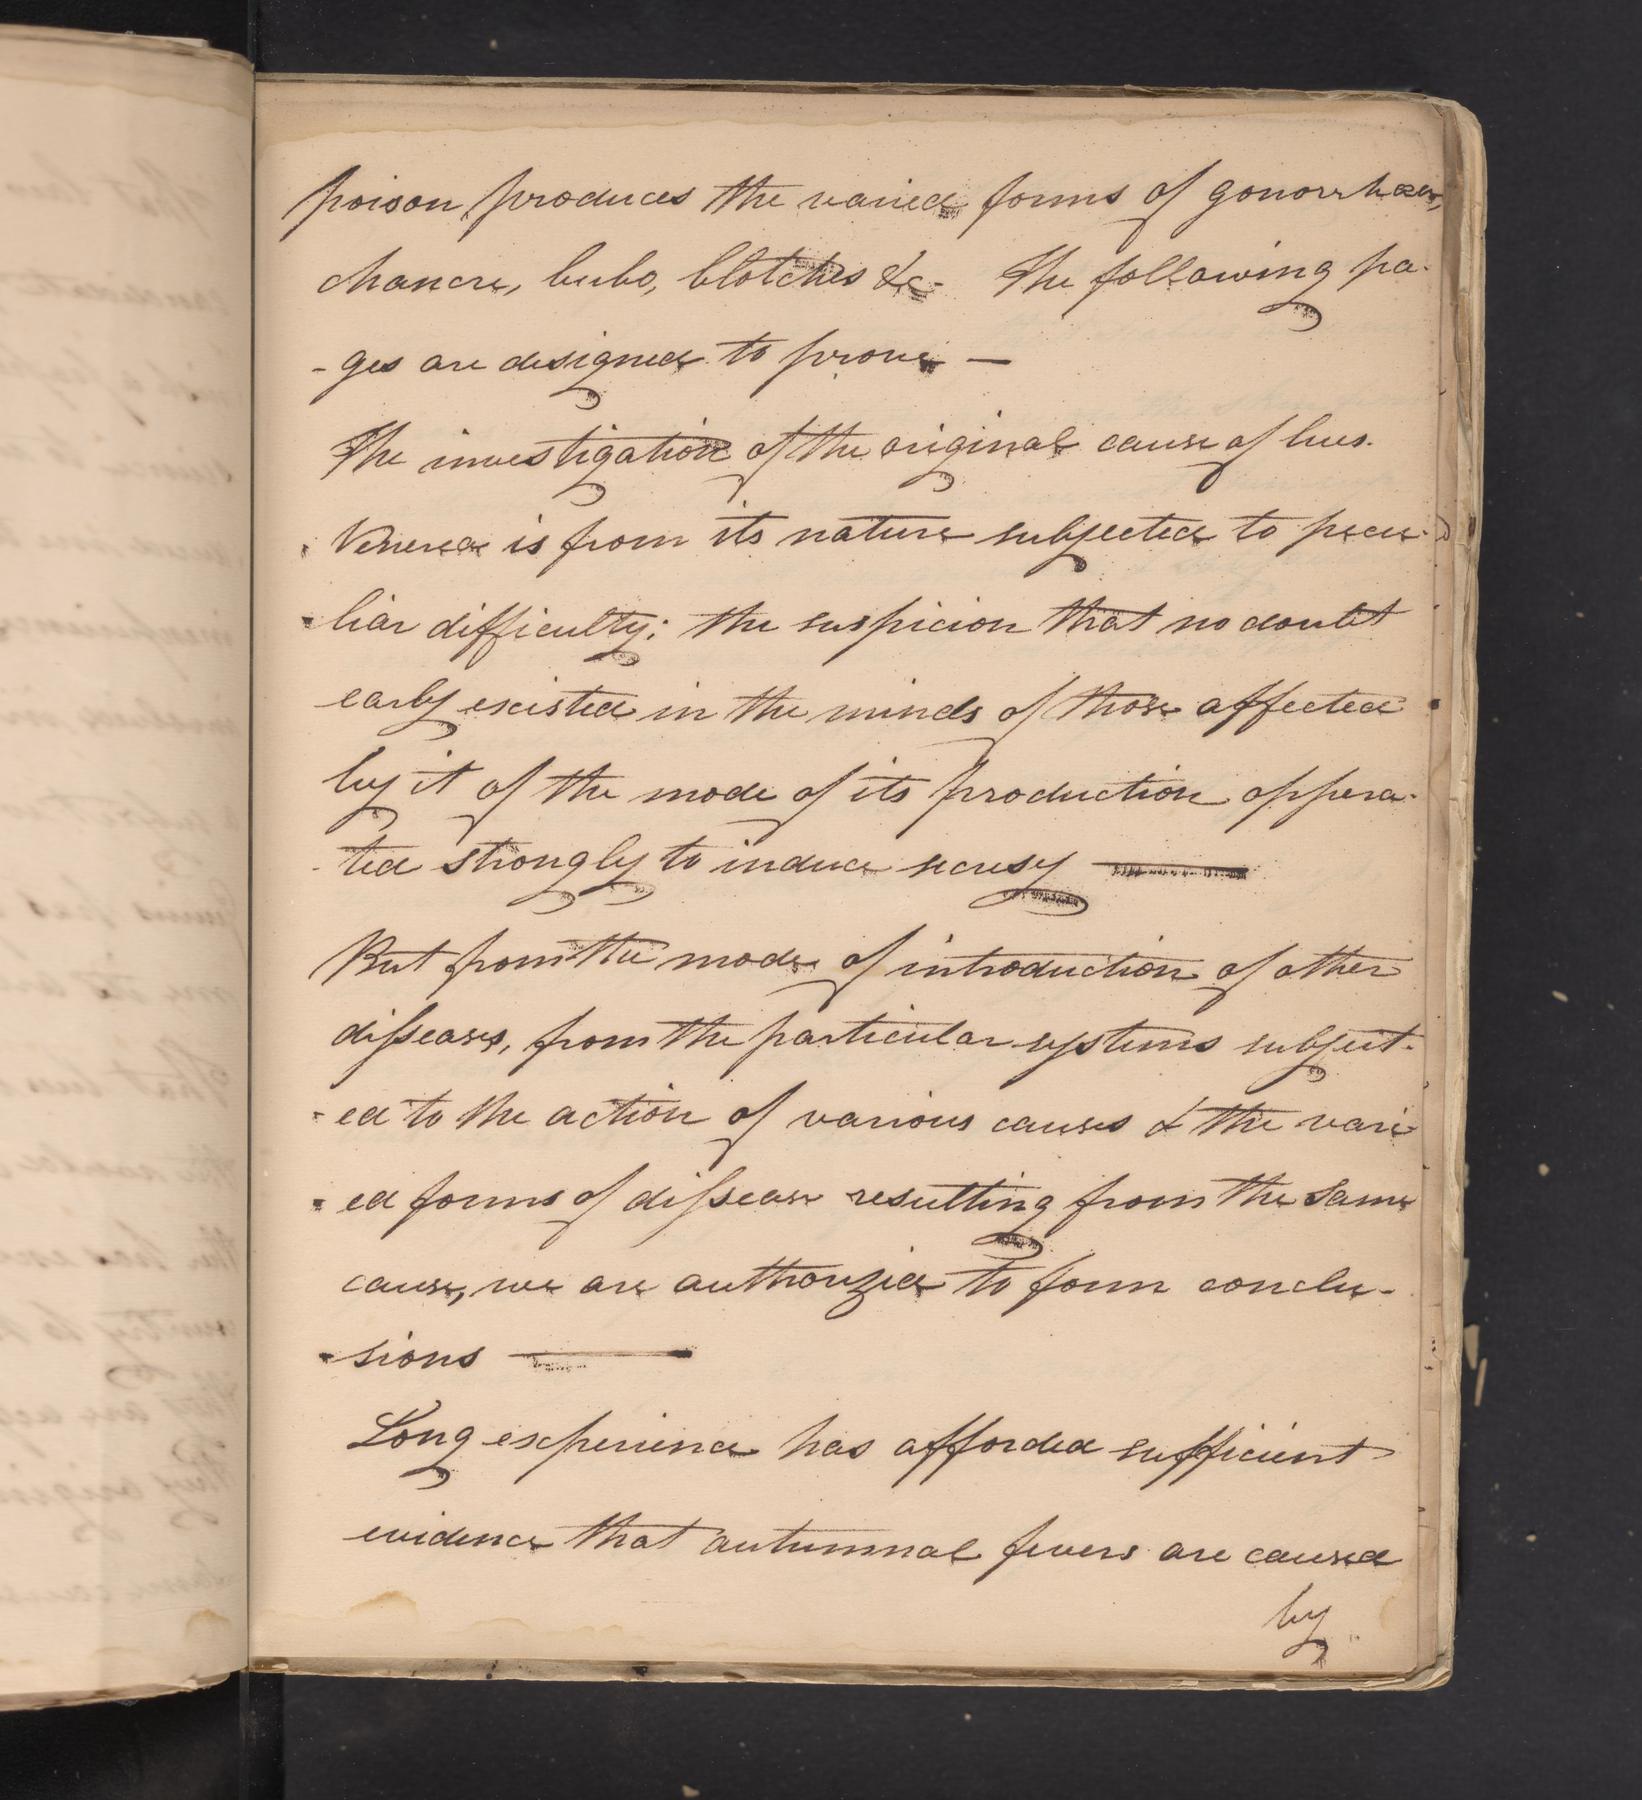 poison produces the varied forms of gonorrhœa,
chancre, bubo, blotches &c- The following pa-
-ges are designed to prove —
The investigation of the original cause of lues
Venerea is from its nature subjected to pecu-
-liar difficulty; the suspicion that no doubt
early existed in the minds of those affected
by it of the mode of its production oppera-
-ted strongly to induce secresy —
But from the mode of introduction of other
disseases, from the particular systems subject-
-ed to the action of various causes & the vari-
-ed forms of dissease resulting from the same
cause, we are authorized to form conclu-
-sions —
Long experience has afforded sufficient
evidence that autumnal fevers are caused
by